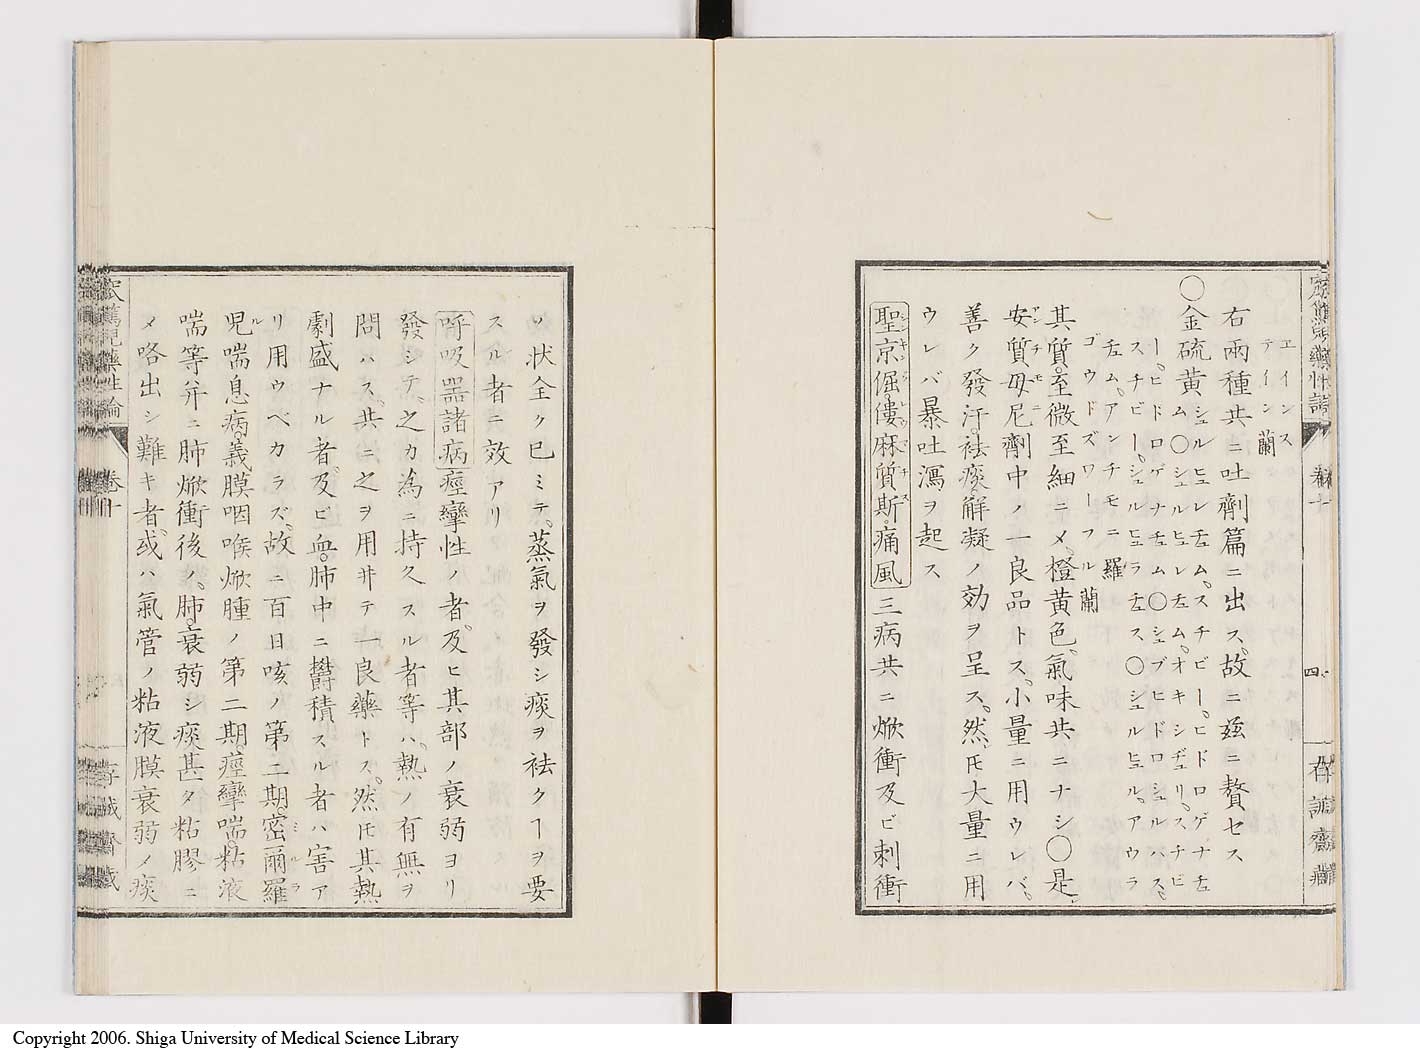 エインス
テイン 蘭
右兩種共ニ吐劑篇ニ出ス、故ニ茲ニ贅セス
〇金硫黄 シュルヒュレチュム、スチビー、ヒドロゲナチュ
ム〇シュルヒュレチュム、オキシヂュリ、スチビ
ー、ヒドロゲナチュム〇シュブヒドロシュルハス、
スチビー、シュルヒュラチュス〇シュルヒュル、アウラ
チュム、アンチモニ 羅
ゴウドズワーフル 蘭
其質至微至細ニメ、橙黄色、氣味共ニナシ〇是、
安質母尼劑中ノ一良品トス、小量ニ用ウレバ、
アンチモニ
善ク發汗、祛痰、解凝ノ効ヲ呈ス、然𪜈大量ニ用
ウレバ暴吐瀉ヲ起ス
聖京倔僂麻質斯、痛風 三病共ニ焮衝及ビ刺衝
四
ノ状全ク已ミテ、蒸氣ヲ發シ痰ヲ祛クヿヲ要
スル者ニ效アリ
呼吸器諸病 痙攣性ノ者、及ヒ其部ノ衰弱ヨリ
發シテ、之カ為ニ持久スル者等ハ、熱ノ有無ヲ
問ハス、共ニ之ヲ用井テ一良藥トス、然𪜈其熱
劇盛ナル者、及ビ血、肺中ニ欝積スル者ハ害ア
リ用ウベカラズ、故ニ百日咳ノ第二期、密爾羅
ミルラ
児喘息病、義膜咽喉焮腫ノ第二期、痙攣喘、粘液
ル
喘等并ニ肺焮衝後ノ、肺衰弱シ痰甚タ粘膠ニ
メ咯出シ難キ者、或ハ氣管ノ粘液膜衰弱ノ痰
卷十